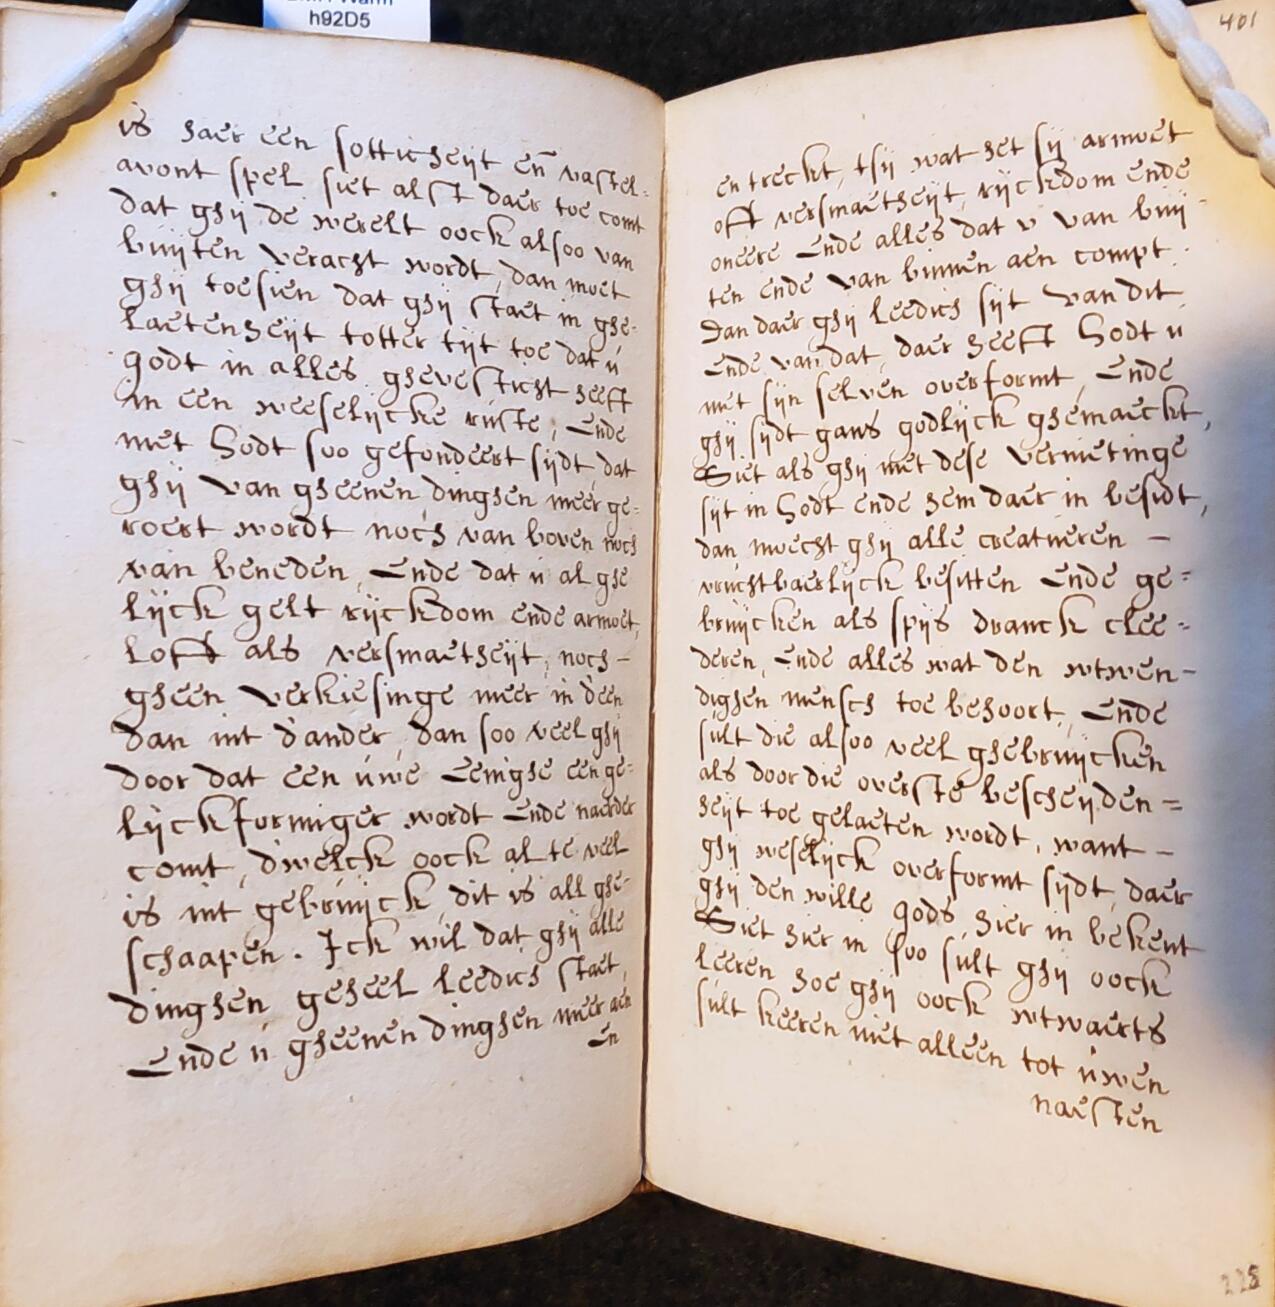 h92D5
is haer een sotticheijt en̄ vastel=
avont spel siet alst daer toe comt
dat ghij de werelt oock alsoo van
buijten veracht wordt, dan moet
ghij toesien dat ghij staet in ghe=
laetenheijt totter tijt toe dat ú
godt in alles ghevesticht heeft
in een weeselijcke rúste, Ende
met Godt soo gefondeert sijdt, dat
ghij van gheenen dinghen meer ge=
roert wordt noch van boven noch
van beneden, Ende dat ú al ghe
lijck gelt rijckdom ende armoet,
Loff als versmaetheijt, noch –
gheen verkiesinge meer in d'een
dan int d'ander, dan soo veel ghij
door dat een úwe Eenighe een ge=
lijckformiger wordt Ende naerder
comt, d'welck oock al te veel
is int gebruijck, dit is all ghe=
schaapen. Ick wil dat ghij alle
dinghen geheel leedich staet,
Ende ú gheenen dinghen meer aen
En
401
en treckt, tsij wat het sij armoet
oft versmaetheijt, rijckdom ende
oneere Ende alles dat u van buij=
ten ende van binnen aen compt.
Dan daer ghij leedich sijt van dit
Ende van dat, daer heeft Godt ú
met sijn selven overformt, Ende
ghij sijdt gans godlijck ghemaeckt,
Siet als ghij met dese vernietinge
sijt in Godt ende hem daer in besidt,
dan moecht ghij alle creatueren –
vruchtbaerlijck besitten Ende ge=
bruijcken als spijs dranck clee=
deren, Ende alles wat den wtwen=
dighen mensch toe behoort, Ende
sult die alsoo veel ghebruijcken
als door die overste bescheijden=
heijt toe gelaeten wordt, want –
ghij weselijck overformt sijdt, daer
ghij den wille Gods hier in bekent
Siet hier in Soo sult ghij oock
leeren hoe ghij oock wtwaerts
sult keeren niet alleen tot úwen
naesten
228